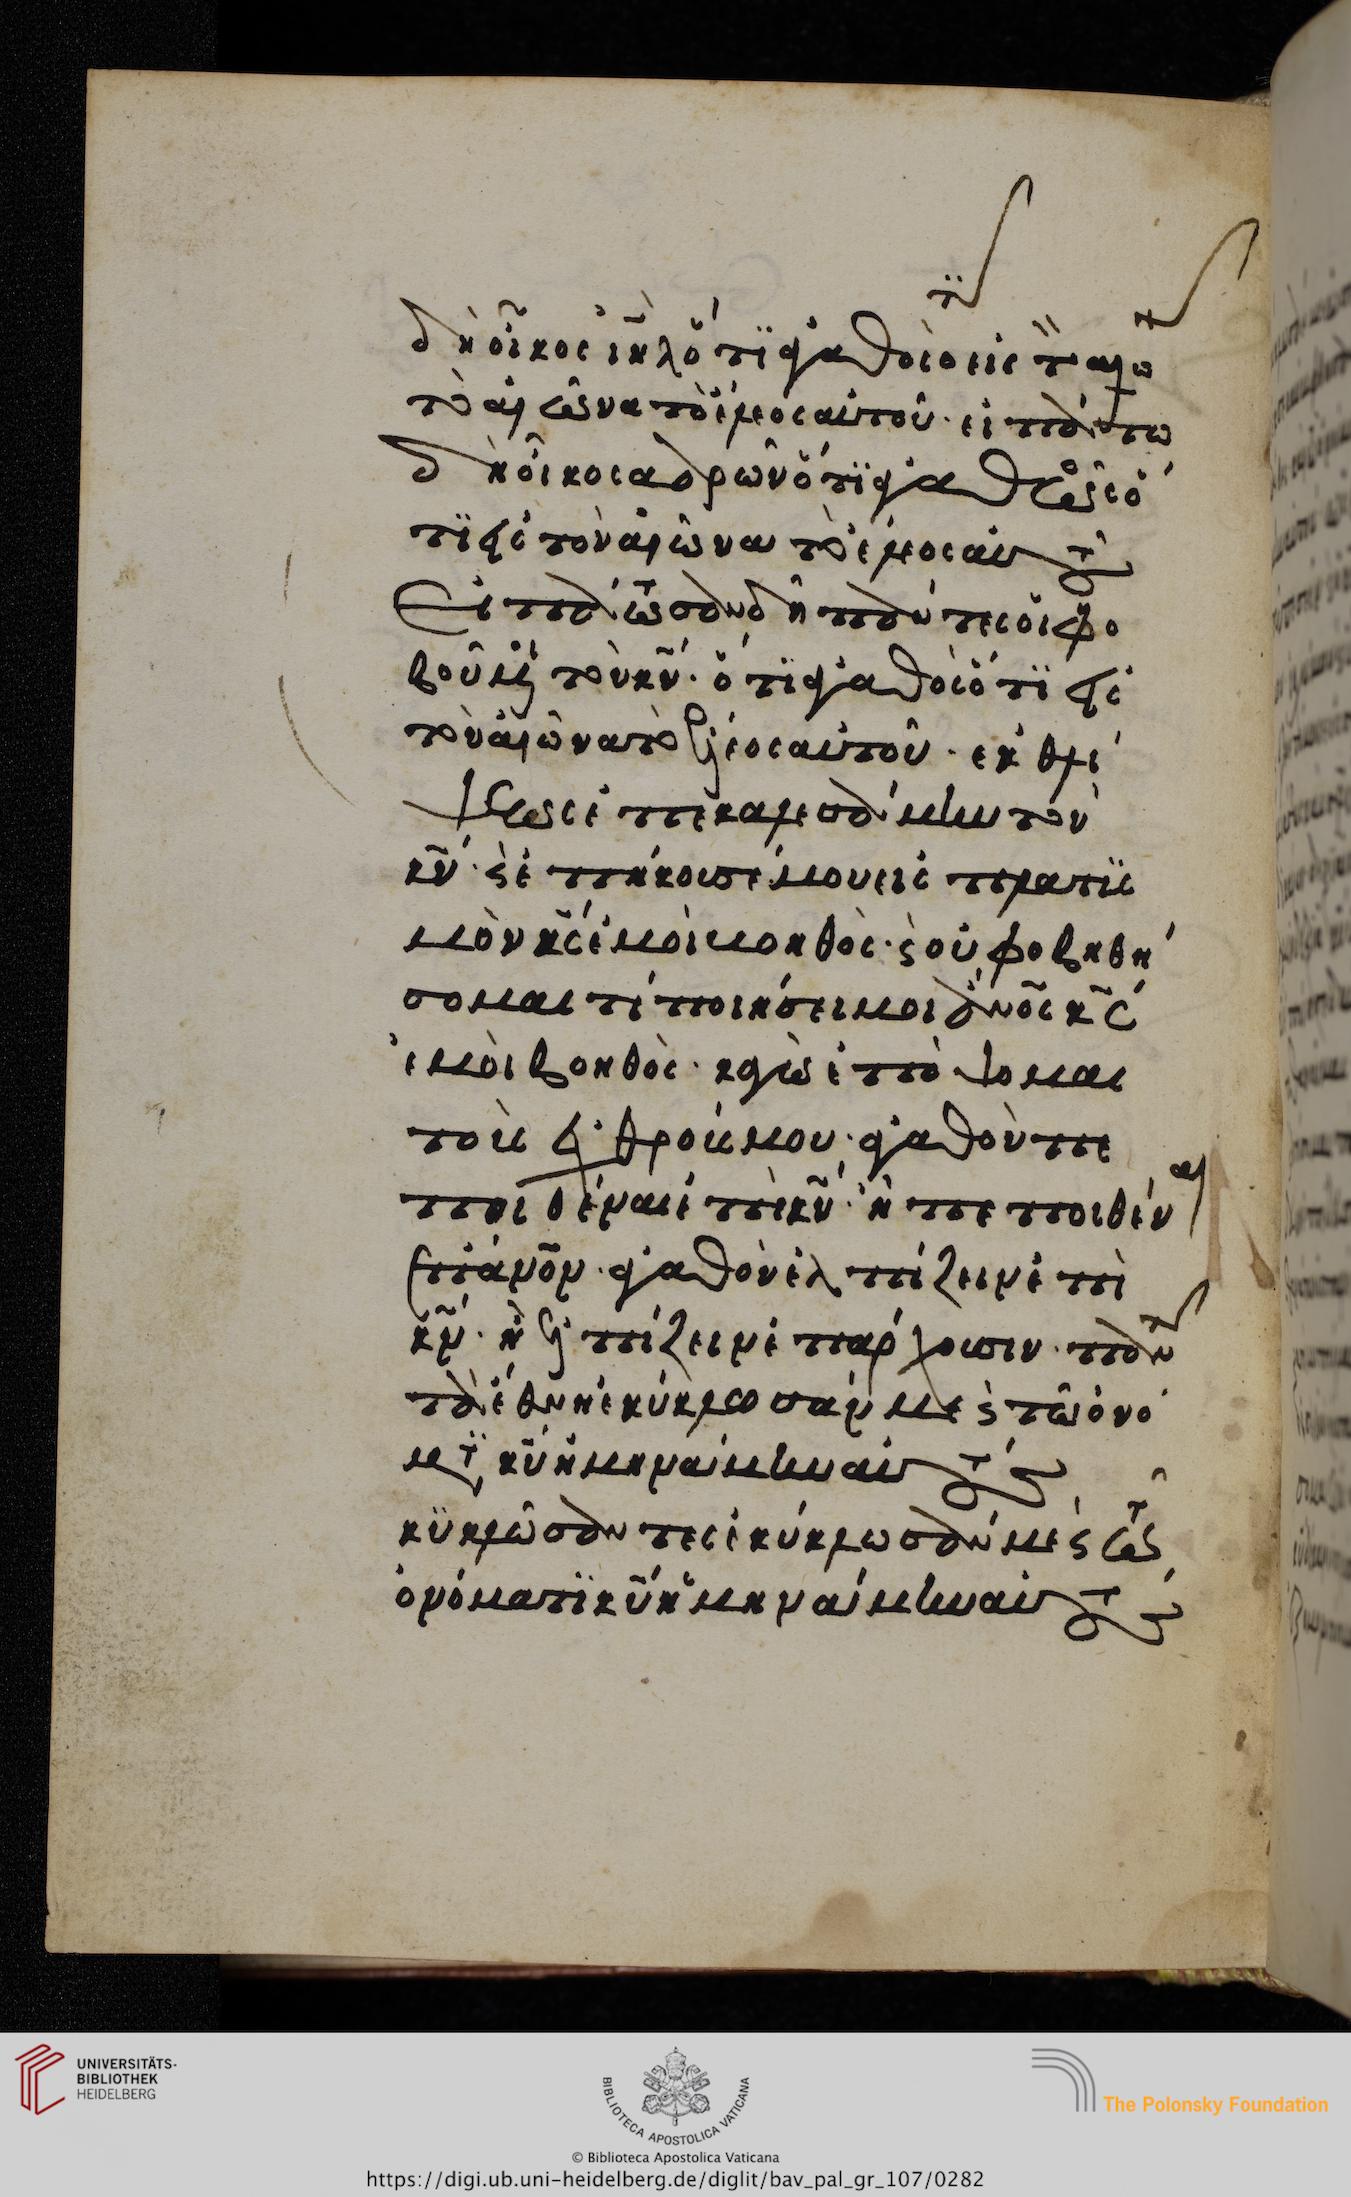 δὴ οἶκος ἰη̅λ ὅτι ἀγαθὸς ὅτι εἰς τὸν αἰῶ
τὸν αἰῶνα τὸ ἔλεος αὐτοῦ. εἰπάτω
δὴ οἶκος ἀαρὼν ὅτι ἀγαθὸς ὅ
τι εἰς τὸν αἰῶνα τὸ ἔλεος αὐτοῦ
Εἰπάτωσαν δὴ πάντες οἱ φο
βούμενοι τὸν κ̅ν. ὅτι ἀγαθὸς ὅτι εἰς
τὸν αἰῶνα τὸ ἔλεος αὐτοῦ. ἐκ θλί
ψεως ἐπεκαλεσάμην τὸν
κ̅ν. ϛ ἐπήκουσέ μου εἰς πλατυς
μὸν κ̅ς ἐμοὶ βοηθὸς. ϛ οὐ φοβηθή
σομαι τί ποιήσει μοι ἄνο̅ς κ̅ς
ἐμοὶ βοηθὸς. κἀγὼ ἐπόψομαι
τοὺς ἐχθρούς μου. ἀγαθὸν πε
ποιθέναι ἐπὶ κ̅ν. ἢ πεποιθέναι
ἐπ' ἄνο̅ν. ἀγαθὸν ἐλπίζειν ἐπὶ
κ̅ν. ἢ ἐλπίζειν ἐπ' ἄρχουσιν. πάντα
τὰ ἔθνη ἐκύκλωσάν με ϛ τῶ ὀνό
ματι κ̅υ ἠμυνάμην αὐτούς
κυκλώσαντες ἐκύκλωσάν με ϛ τῶ
ὀνόματι κ̅υ ἠμυνάμην αὐτούς
UNIVERSITÄTS-
BIBLIOTHEK
HEIDELBERG
BIBLIOTECA APOSTOLICA VATICANA
The Polonsky Foundation
© Biblioteca Apostolica Vaticana
https://digi.ub.uni-heidelberg.de/diglit/bav_pal_gr_107/0282